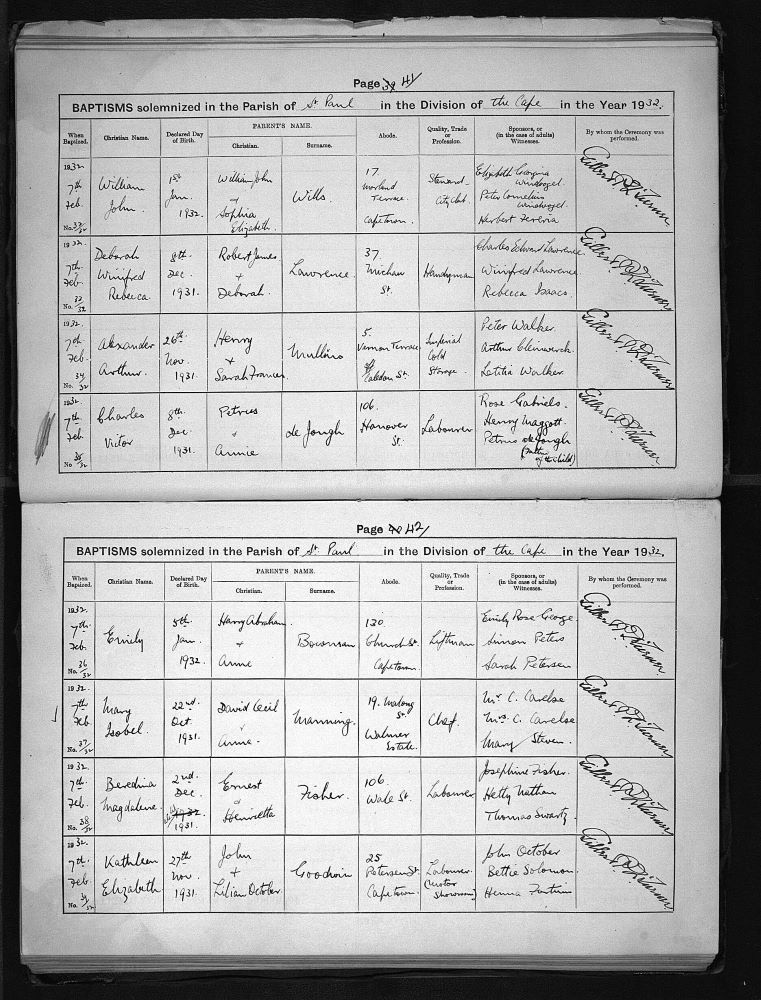 Page 39 41/
BAPTISMS solemnized in the Parish of St. Paul in the Division of the Cape in the Year 1932.
When Baptized. Christian Name. Declared Day of Birth. PARENT'S NAME. Christian. Surname. Abode. Quality, Trade or Profession. Sponsors, or (in the case of adults) Witnesses. By whom the Ceremony was performed.
1932. 7th Feb. No. 32/32 William John 1st Jan. 1932. William John + Sophia Elizabeth Wills. 17 Morland Terrace Capetown. Steward City Club. Elizabeth Georgina Windvogel. Peter Cornelius Windvogel. Herbert Fereria
1932. 7th Feb. No. 33/32 Deborah Winifred Rebecca 8th Dec. 1931. Robert James + Deborah. Lawrence. 37. St. Handyman Charles Edward Lawrence Winifred Lawrence Rebecca Isaacs.
1932. 7th Feb. No. 34/32 Alexander Arthur. 26th Nov. 1931. Henry + Sarah Frances. Mullins 5. Vernon Terrace off Caledon St. Imperial Cold Storage. Peter Walker. Arthur Letitia Walker.
1932. 7th Feb. No 35/32 Charles Victor 8th. Dec. 1931. Petrus + Annie de Jongh 106. Hanover St. Labourer Rose Gabriels. Henry Maggott. Petrus de Jongh (Father of the child)
Page 40 42/
BAPTISMS solemnized in the Parish of St. Paul in the Division of the Cape in the Year 1932.
When Baptized. Christian Name. Declared Day of Birth. PARENT'S NAME. Christian. Surname. Abode. Quality, Trade or Profession. Sponsors, or (in the case of adults) Witnesses. By whom the Ceremony was performed.
1932. 7th Feb. No. 36/32 Emily 5th Jan. 1932. Harry Abraham. + Anne Bowman 130 Church St. Capetown. Liftman Emily Rose George. Simon Peters Sarah Petersen
1932. 7th Feb. No. 37/32 Mary Isobel. 22nd. Oct. 1931. David Cecil + Anna. Manning. 19. St. Walmer Estate. Chef. Mr C. Carelse Mrs. C. Carelse Mary Steven.
1932. 7th Feb. No. 38/32 Beredina Magdalene. 2nd. Dec. 1932 1931. Ernest + Henrietta Fisher. 106 Wale St. Labourer Josephine Fisher. Hetty Nathan Thomas Swartz.
1932. 7th Feb. No. 39/32 Kathleen Elizabeth 27th Nov. 1931. John + Lilian October. Goodwin 25 Petersen St. Capetown. Labourer. (Motor Showroom) John October Bettie Solomon. Henna